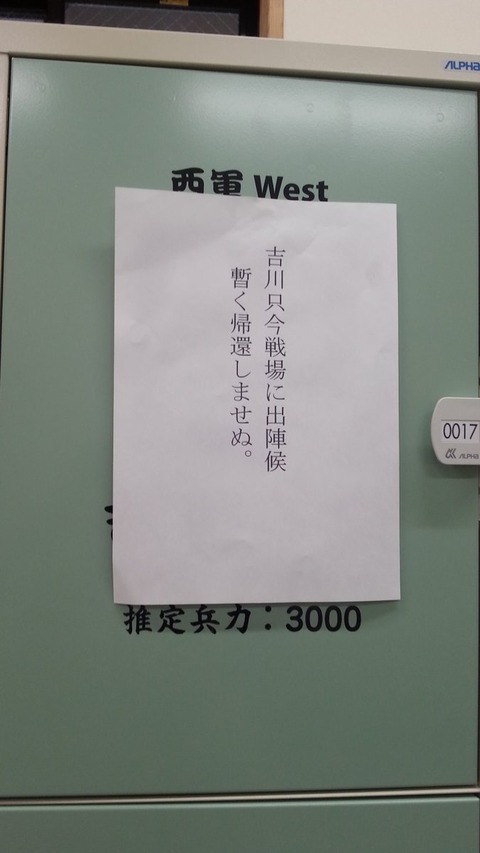 ALPHA
西軍 West
吉川只今戦場に出陣候
暫く帰還しませぬ。
0017
ALPHA
推定兵力：3000